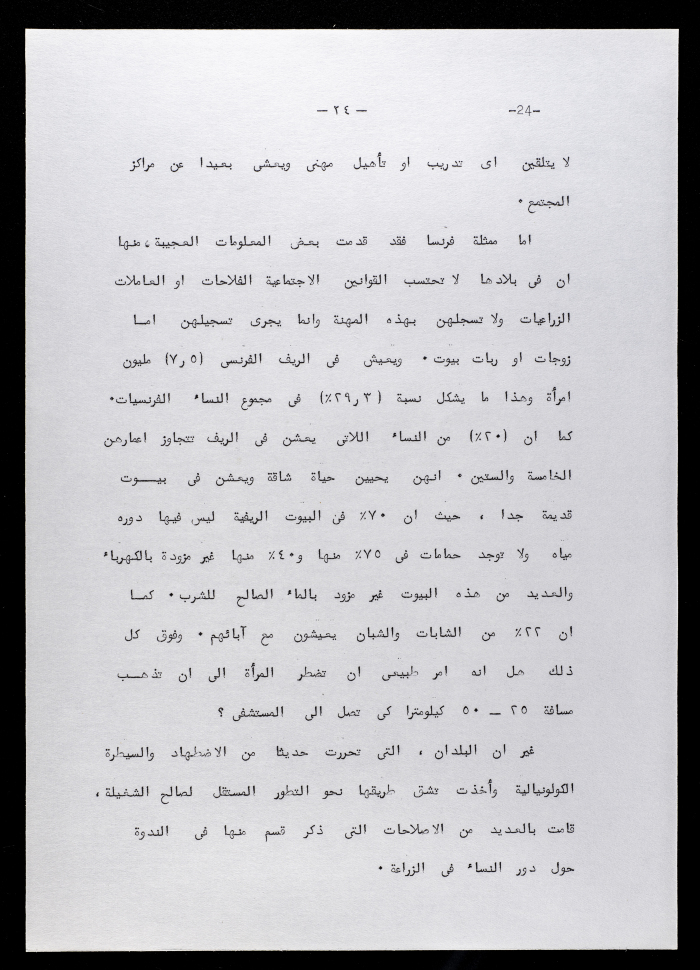 — ٢٤ — -24-
لا يتلقين اى تدريب او تأهيل مهنى ويعشى بعيدا عن مراكز
المجتمع .
اما ممثلة فرنسا فقد قدمت بعض المعلومات العجيبة ، منها
ان فى بلادها لا تحتسب القوانين الاجتماعية الفلاحات او العاملات
الزراعيات ولا تسجلهن بهذه المهنة وانما يجرى تسجيلهن امـا
زوجات او ربات بيوت . ويعيش فى الريف الفرنسى (٥ر٧) مليون
امرأة وهذا ما يشكل نسبة (٣ر٢٩٪) فى مجموع النساء الفرنسيات.
كما ان (٢٠٪) من النساء اللاتى يعشن فى الريف تتجاوز اعمارهن
الخامسة والستين . انهن يحيين حياة شاقة ويعشن فى بيـــوت
قديمة جدا ، حيث ان ٧٠٪ فن البيوت الريفية ليس فيها دوره
مياه ولا توجد حمامات فى ٧٥٪ منها و٤٠٪ منها غير مزودة بالكهرباء
والعديد من هذه البيوت غير مزود بالماء الصالح للشرب . كمـا
ان ٢٢٪ من الشابات والشبان يعيشون مع آبائهم . وفوق كل
ذلك هل انه امر طبيعى ان تضطر المرأة الى ان تذهـب
مسافة ٢٥ — ٥٠ كيلومترا كى تصل الى المستشفى ؟
غير ان البلدان ، التى تحررت حديثا من الاضطهاد والسيطرة
الكولونيالية وأخذت تشق طريقها نحو التطور المستقل لصالح الشغيلة ،
قامت بالعديد من الاصلاحات التى ذكر قسم منها فى الندوة
حول دور النساء فى الزراعة .